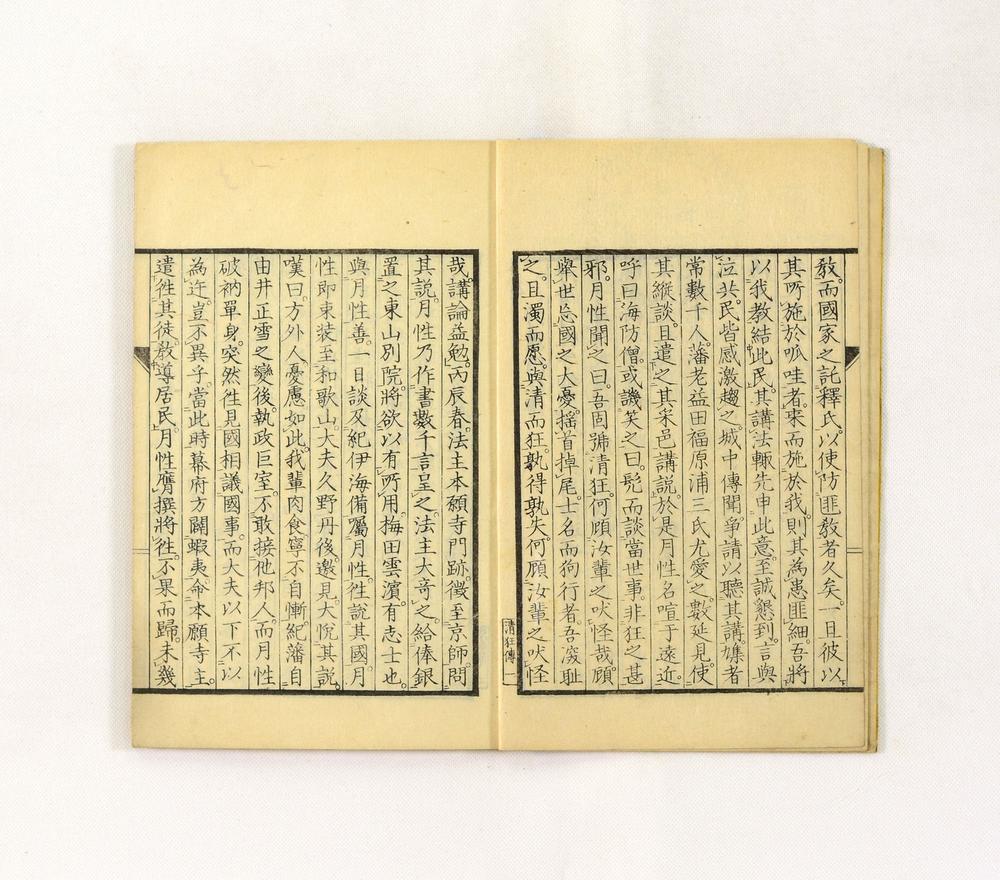 教。而國家之託釋氏。以使防匪教者久矣。一旦彼以
其所施於呱哇者。來而施於我。則其為患匪細。吾將
以我教結此民。其講法輒先申此意。至誠懇到。言與
泣共。民皆感激趨之。城中傳聞爭請以聽其講。集者
常數千人。藩老益田福原浦三氏尤愛之。數延見。使
其縱談。且遣之其采邑講說。於是月性名喧于遠近。
呼曰海防僧。或譏笑之曰。髡而談當世事。非狂之甚
邪。月性聞之曰。吾固號清狂。何顧汝輩之吠怪哉。顧
舉世忘國之大憂。搖首掉尾。士名而狗行者。吾深耻
之。且濁而愿。與清而狂。孰得孰失。何顧汝輩之吠怪
清狂傳
哉。講論益勉。丙辰春。法主本願寺門跡。徵至京師。問
其說。月性乃作書數千言呈之。法主大奇之。給俸銀
置之東山別院。將欲以有所用。梅田雲濱有志士也。
與月性善。一日談及紀伊海備。囑月性往說其國。月
性即束装至和歌山。大夫久野丹後。邀見大悅其說。
嘆曰。方外人憂慮如此。我輩肉食寧不自慚。紀藩自
由井正雪之變後。執政巨室。不敢接他邦人。而月性
破衲單身。突然往見國相議國事。而大夫以下不以
為迕。豈不異乎。當此時幕府方闢蝦夷。命本願寺主。
遣徃其徒。教導居民。月性膺撰將徃。不果而歸。未幾